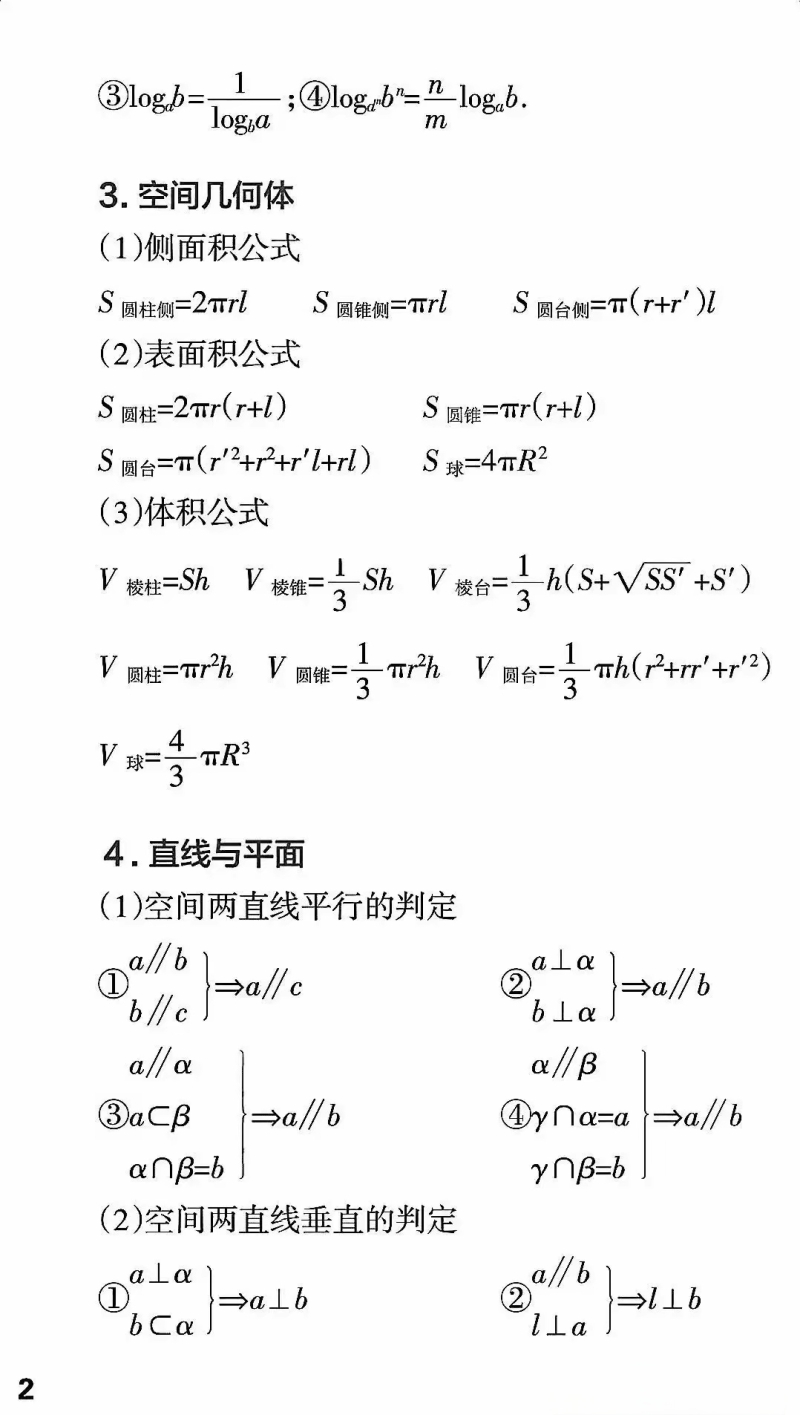 ③logₐb=1/log_b a;④log_{aᵐ}bⁿ=n/m logₐb.
3. 空间几何体
(1)侧面积公式
S圆柱侧=2πrl S圆锥侧=πrl S圆台侧=π(r+r′)l
(2)表面积公式
S圆柱=2πr(r+l) S圆锥=πr(r+l)
S圆台=π(r′²+r²+r′l+rl) S球=4πR²
(3)体积公式
V棱柱=Sh V棱锥=1/3 Sh V棱台=1/3 h(S+√SS′+S′)
V圆柱=πr²h V圆锥=1/3 πr²h V圆台=1/3 πh(r²+rr′+r′²)
V球=4/3 πR³
4. 直线与平面
(1)空间两直线平行的判定
①a∥b b∥c}⇒a∥c ②a⊥α b⊥α}⇒a∥b
③a∥α a⊂β α∩β=b}⇒a∥b ④α∥β γ∩α=a γ∩β=b}⇒a∥b
(2)空间两直线垂直的判定
①a⊥α b⊂α}⇒a⊥b ②a∥b l⊥a}⇒l⊥b
2